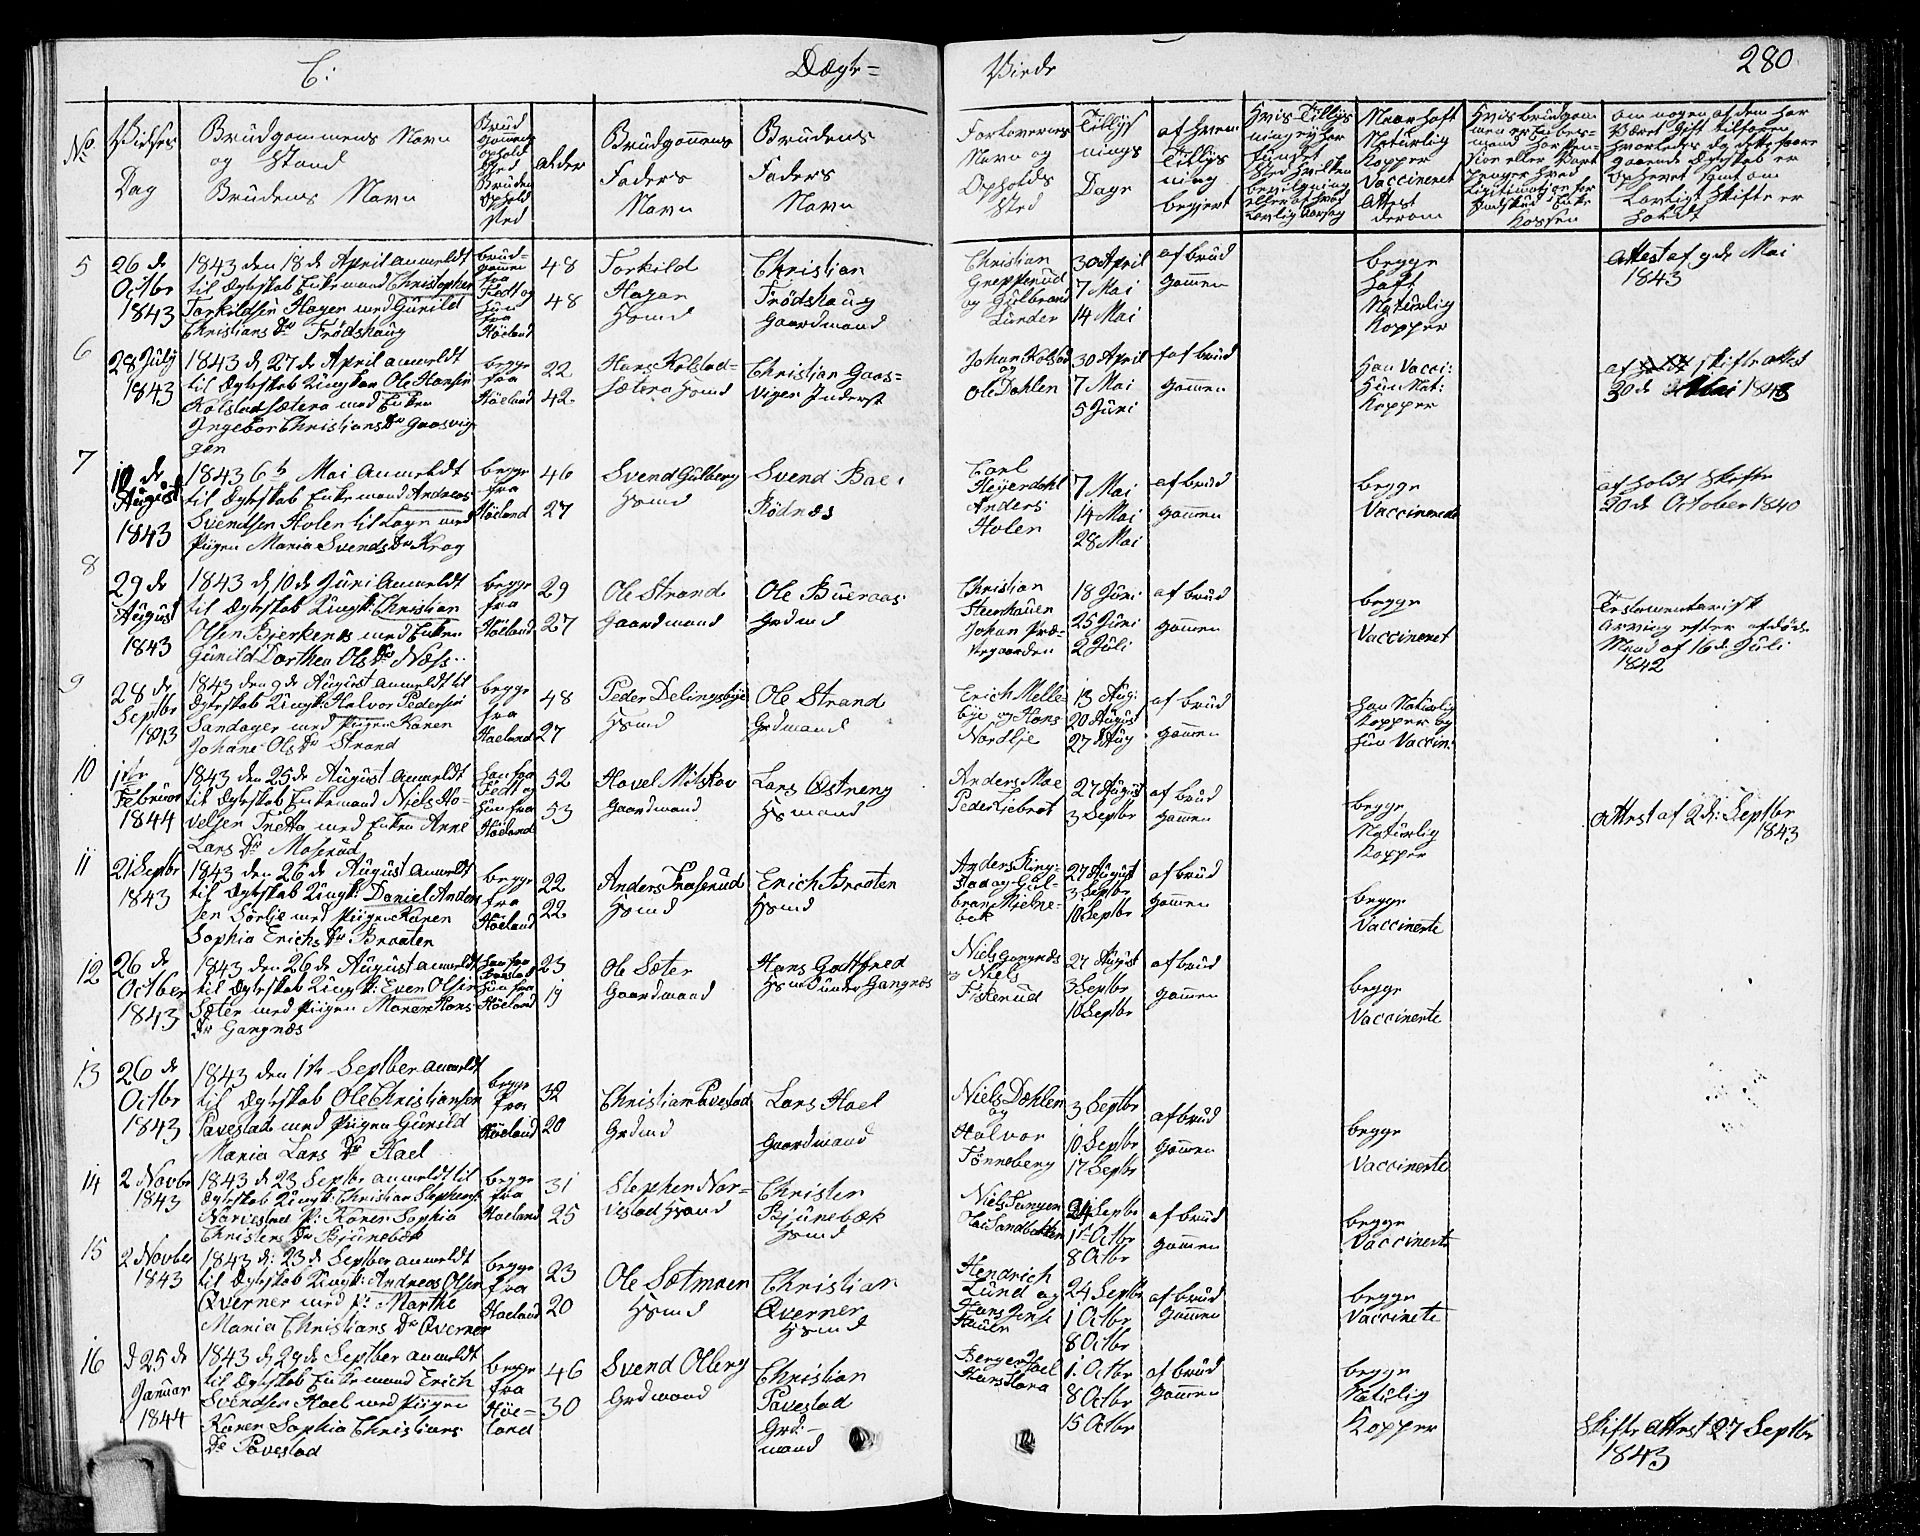 C: Ægte= Viede 280
No. Vielses Dag
Brudgommens Navn og Stand Brudens Navn
Brudgommens opholds Sted Brudens Ophold sted
alder
Brudgommens Faders Navn
Brudens Faders Navn
Forlovernes Navn og Opholds Sted
Tillysnings Dage
af hvem Tillysning begjert
Naar haft Naturlig Kopper Vaccineret Attest derom
5
26 de Octbr 1843
1843 den 18 de April anmeldt
til Ægteskab Enkemand Christopher
Torkildsen Hagen med Gunild
Christians Dr Trødshaug
48
48
Torkild Hagen Hsmd
Christian Trødshaug Gaardmand
Christian Grepperud og Gulbrand Lunder
30 April
7 Mai
14 Mai
af brudgommen
begge haft Naturlig Kopper
Attest af 9 de Mai 1843
6
28 July 1843
1843 d. 27 de April anmeldt
til Ægteskab Ungkar Ole Hansen
Kolstadsætera med Enken
Ingebor Christians Dr Gaasviggen
begge fra Höeland
22
42
Hans Kolstadsætera Hsmd
Christian Gaasvigen Inderst
Johan Kolstad og Ole Dahlen
30 April
7 Mai
5 Juni
af brudgommen
Han Vacci: Hun Nat: Kopper
skifte attest 30 de Mai 1843
7
10 de August 1843
1843 6 te Mai anmeldt
til Ægteskab Enkemand Andreas
Svendsen Holen til Lagn med
Pigen Maria Svends Dr Krog
begge fra Höeland
46
27
Svend Gulberg Hsmd
Svend Bae Rødnæs
Carl Heyerdahl Anders Holen
7 Mai
14 Mai
28 Mai
af brudgommen
begge Vaccinerede
afholdt Skifte 30 de October 1840
8
29 de August 1843
1843 d. 10 de Juni Anmeldt
til Ægteskab Ungk: Christian
Olsen Bjerkenes med Enken
Gunild Dorthea Ols Dr Næss
begge fra Höeland
29
27
Ole Strand Gaardmand
Ole Bueraas Grdmd
Christian Steenhauer Johan Prægaarden
18 Juni
25 Juni
2 Juli
af brudgommen
begge Vaccineret
Testamentarisk Arving efter afdøde Mand af 16 d. Juli 1842
9
28 de Septbr 1843
1843 den 9 de August anmeldt til
Ægteskab Ungk: Halvor Pedersen
Sandager med Pigen Karen
Johane Ols Dr Strand
begge fra Høeland
48
27
Peder Delingsbye Hsmd
Ole Strand Grdmand
Erich Mellebye og Hans Nordlie
13 Aug:
20 August
27 Aug
af brudgommen
Han Naturlig Kopper og Hun Vaccin:
10
1ste Februar 1844
1843 den 25 de August anmeldt
til Ægteskab Enkemand Niels Hovelsen
Tretta med Enken Anne
Lars Dr Moserud
52
53
Hovel Milskov Gaardmand
Lars Østreng Hsmand
Anders Moe Peder Liebret
27 August
3 Septbr
af brudgommen
begge Naturlig Kopper
Attest af 2 d: Septbr 1843
11
21 Septbr 1843
1843 den 26 de August anmeldt
til Ægteskab Ungk: Daniel Andersen
Sörlie med Pigen Karen
Sophia Erichs Dr Braaten
begge fra Höeland
22
22
Anders Fraserud Hsmd
Erich Braaten Hsmd
Anders Ringstad og Gulbran Mjelnebek
27 August
3 Septbr
10 Septbr
af brudgommen
begge Vaccinerte
12
26 de October 1843
1843 den 26 de August anmeldt
til Ægteskab Ungk: Even Olsen
Sæter med Pigen Maren Hans
Dr Gangnæs
23
19
Ole Sæter Gaardmand
Hans Godtfred Hsmd under Gangnæs
Niels Gangnæs og Niels Fiskerud
27 August
3 Septbr
10 Septbr
af brudgommen
begge Vaccinerte
13
26 de Octbr 1843
1843 den 1te Septber anmeldt
til Ægteskab Ole Christiansen
Pavestad med Pigen Gunild
Maria Lars Dr Hael
begge fra Höeland
32
20
Christian Pavestad Grdmd
Lars Hael Gaardmand
Niels Dæhlen og Halvor Tønneberg
3 Septbr
10 Septbr
17 Septbr
af brudgommen
begge Vaccinerte
14
2 Novbr 1843
1843 d. 23 Septbr anmeldt til
Ægteskab Ungk: Christian Stephens
Norvestad P: Karen Sophia
Christens Dr Bjunebæk
begge fra Høeland
31
25
Stephen Norvestad Hsmand
Christen Bjunebæk Hsmd
Ole Sandbækken
24 Septbr
1st Octbr
8 Octbr
af brudgommen
begge Vaccinerte
15
2 Novber 1843
1843 d: 23 de Septber anmeldt
til Ægteskab Ungk: Andreas Olsen
Qverner med P: Marthe
Maria Christians Dr Qverner
begge fra Høeland
23
20
Ole Sætmoen Hsmd
Christian Qverner Hsmd
Hendrich Lund og Hans Jensehauen
24 Septbr
1 Octbr
8 Octbr
af brudgommen
begge Vaccinerte
16
d 25 de Januar 1844
1843 d. 29 de Septber anmeldt
til Ægteskab Enkemand Erich
Svendsen Hael med Pigen
Karen Sophia Christians
Dr Pavestad
begge fra Höeland
46
30
Svend Olberg Grdmand
Christian Pavestad Grdmand
Berger Hael Hans Hara
1. Octbr
8 Octbr
15 Octbr
af brudgommen
begge Natulig Kopper
Skifte Attest 27 Septbr 1843